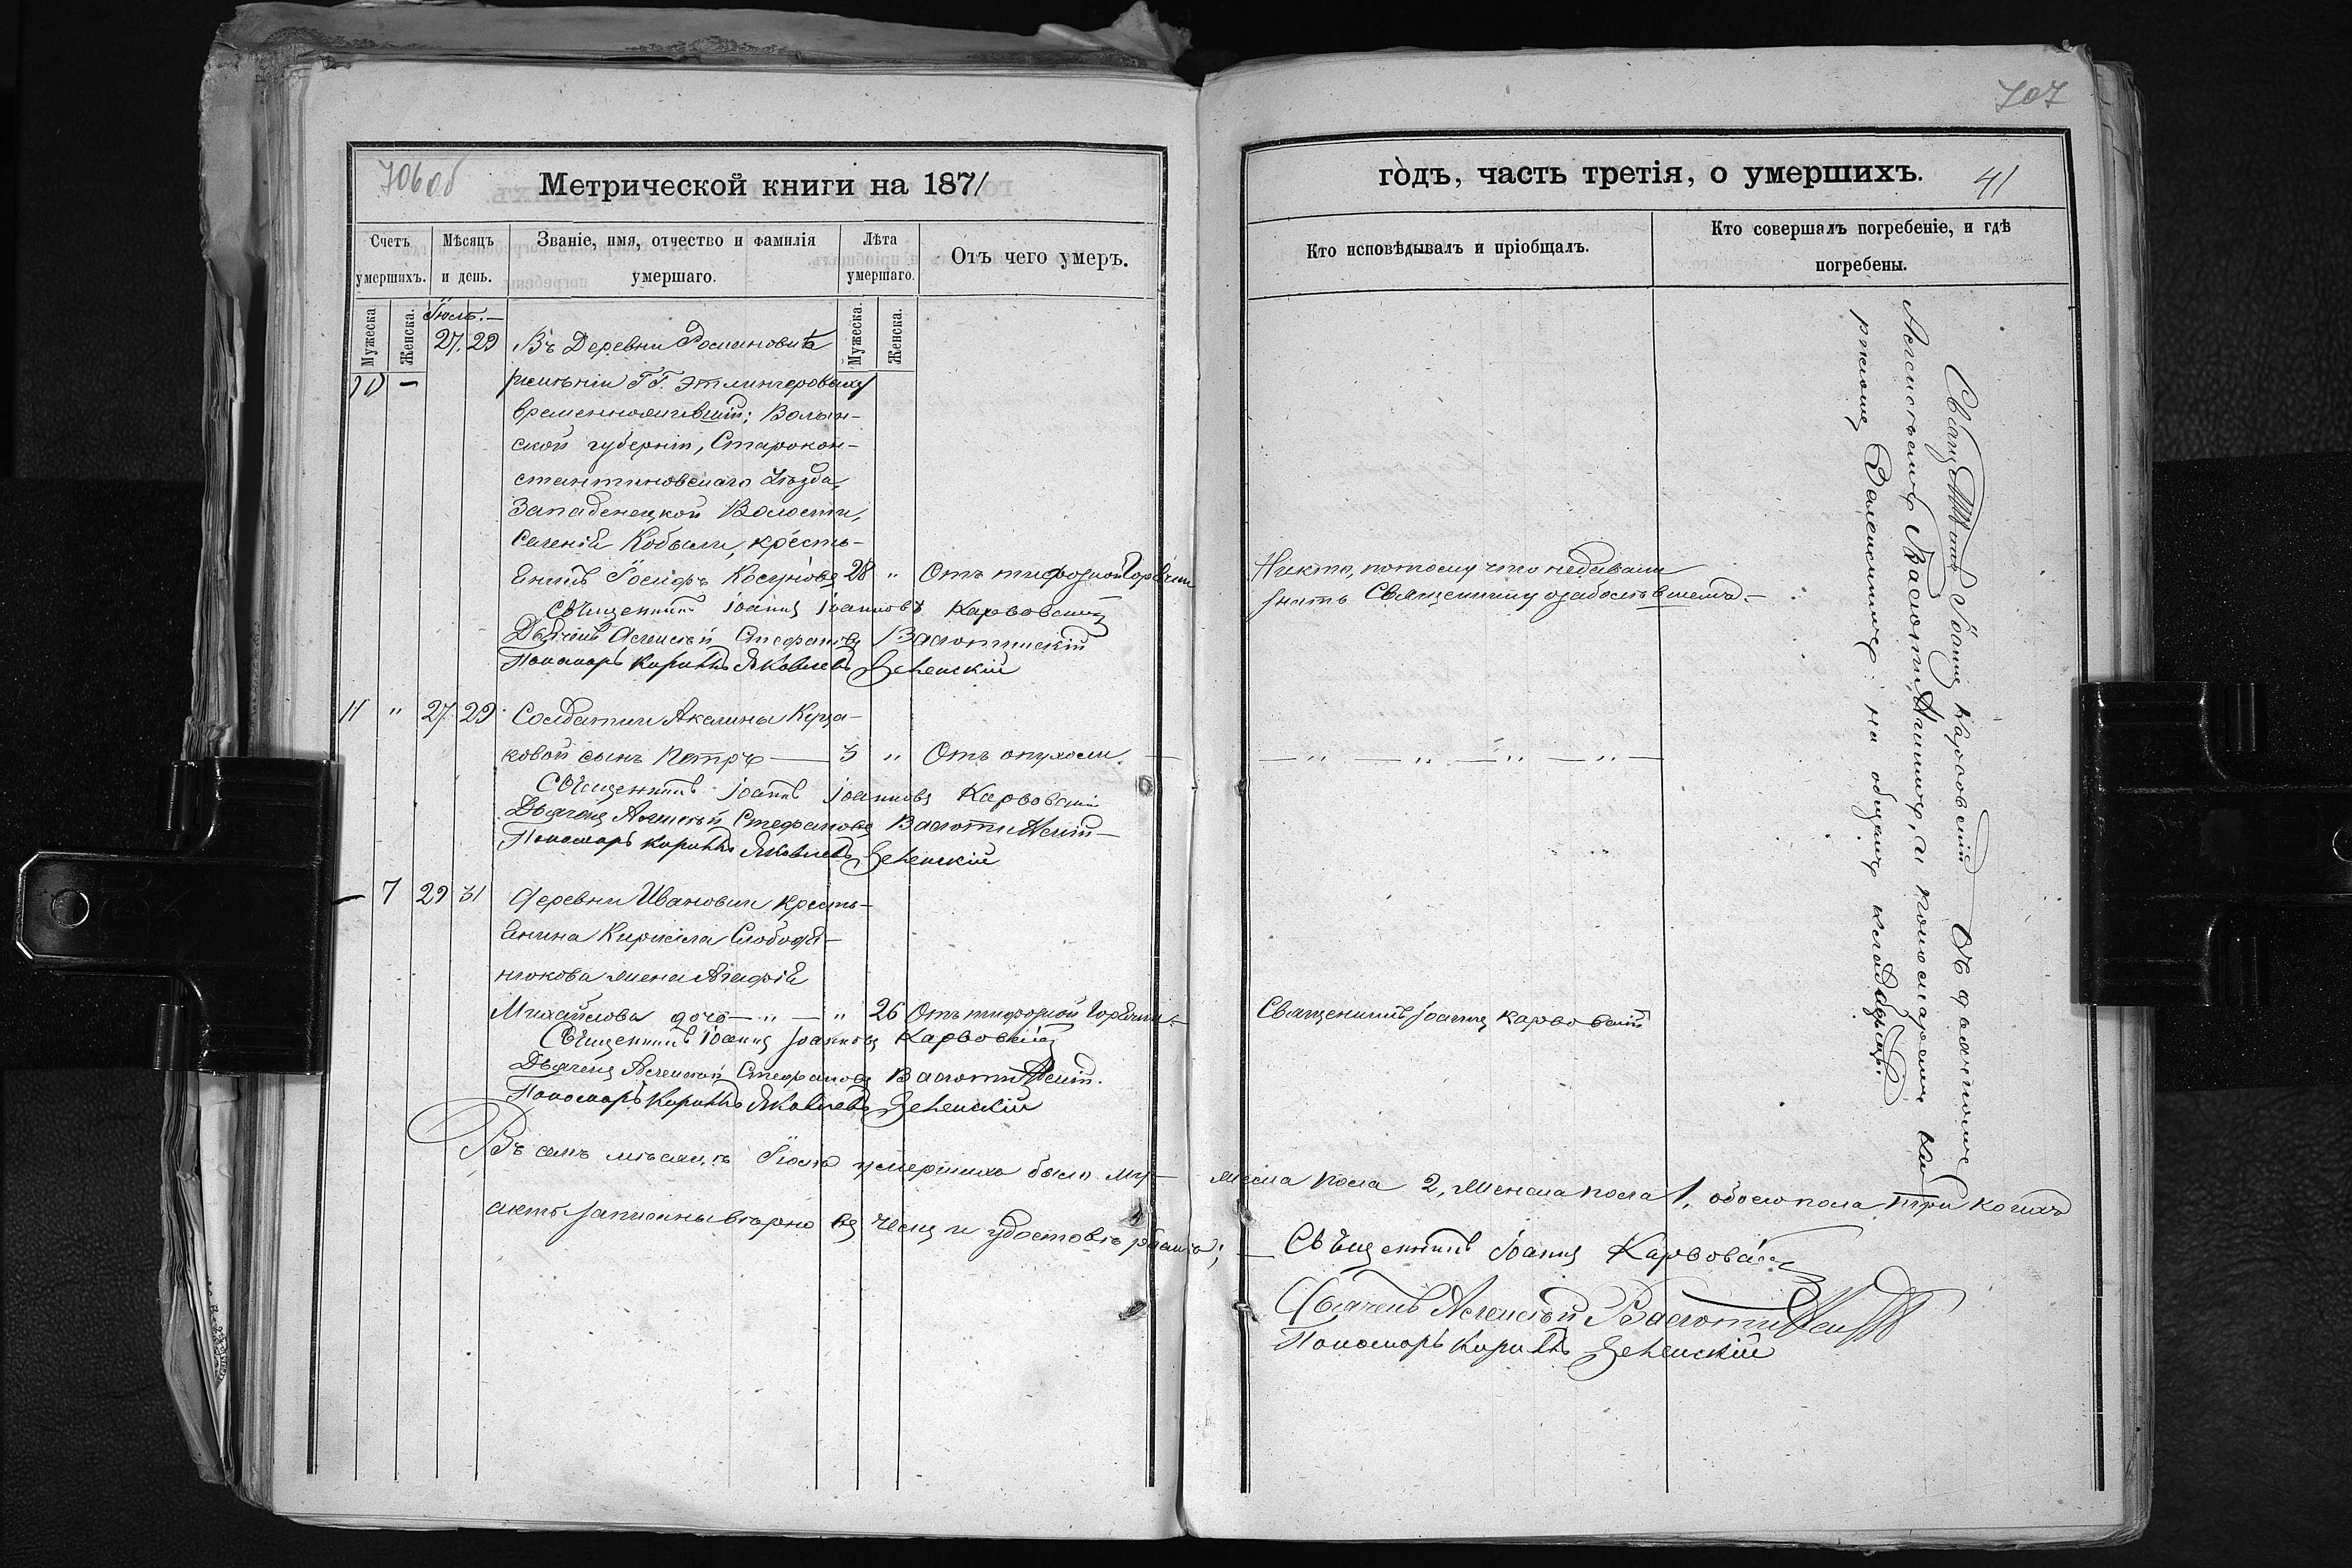 706 об
Метрической книги на 1871
Счетъ умершихъ.
Мѣсяцъ и день.
Званіе, имя, отчество и фамилія умершаго.
Лѣта умершаго.
Отъ чего умеръ.
Мужеска
Женска.
Мужеска.
Женска.
Іюль.
10 — 27. 29 Въ Деревни Романовкѣ
имѣніи ГГ. Этлингеровыхъ
временножившій: Волын-
ской губерніи, Старокон-
стантиновскаго Уѣзда,
Западенецкой Волости,
Селенія Кобыли, кресть-
янинъ Іосифъ 28 " Отъ тифозной Горячки
Священникъ Іоаннъ Іоанновъ Карвовскій
Дьячекъ Алексѣй Стефановъ
Пономарь Кириллъ Яковлевъ Зеленскій
11 " 27 29 Солдатки Акилины
ковой сынъ Петръ — 3 " Отъ опухоли. —
Священникъ Іоаннъ Іоанновъ Карвовскій
Дьячекъ Алексѣй Стефановъ
Пономарь Кириллъ Яковлевъ Зеленскій
— 7 29 31 Деревни Ивановки кресть-
янина Кирилла Слободя-
нюкова жена Агафія
Михайлова дочь — " — " 26 Отъ тифозной Горячки. —
Священникъ Іоаннъ Іоанновъ Карвовскій
Дьячекъ Алексѣй Стефановъ
Пономарь Кириллъ Яковлевъ Зеленскій
Въ семъ мѣсяцѣ Іюлѣ умершихъ было му-
жеска пола 2, женска пола 1, обоего пола три коихъ
акты записаны вѣрно въ чемъ и удостовѣряемъ; —
707
годъ, часть третія, о умершихъ.
41
Кто исповѣдывалъ и пріобщалъ.
Кто совершалъ погребеніе, и гдѣ погребены.
Никто, потому что недавали
знать Священнику о заболѣвшемъ. —
— " — " — " — " —
Священникъ Іоаннъ Карвовскій
Священникъ Іоаннъ Карвовскій съ дьячкомъ
Алексѣемъ и пономаремъ Ки-
рилломъ Зеленскимъ: на общемъ кладбищѣ.
Священникъ Іоаннъ Карвовскій
Дьячекъ Алексѣй
Пономарь Кириллъ Зеленскій